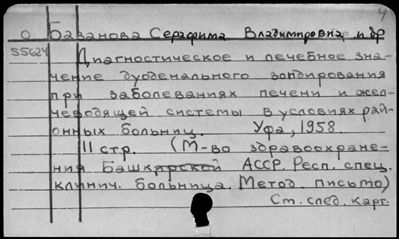 4
О Базанова Серафима Владимировна и др
55624 Диагностическое и лечебное зна-
чение дуоденального зондирования
при заболеваниях печени и жел-
чеводящей системы в условиях рай-
онных больниц. Уфа, 1958.
11 стр. (М-во здравоохране-
ния Башкирской АССР. Респ. спец.
клинич. больница. Метод. письмо)
См. след. карт.